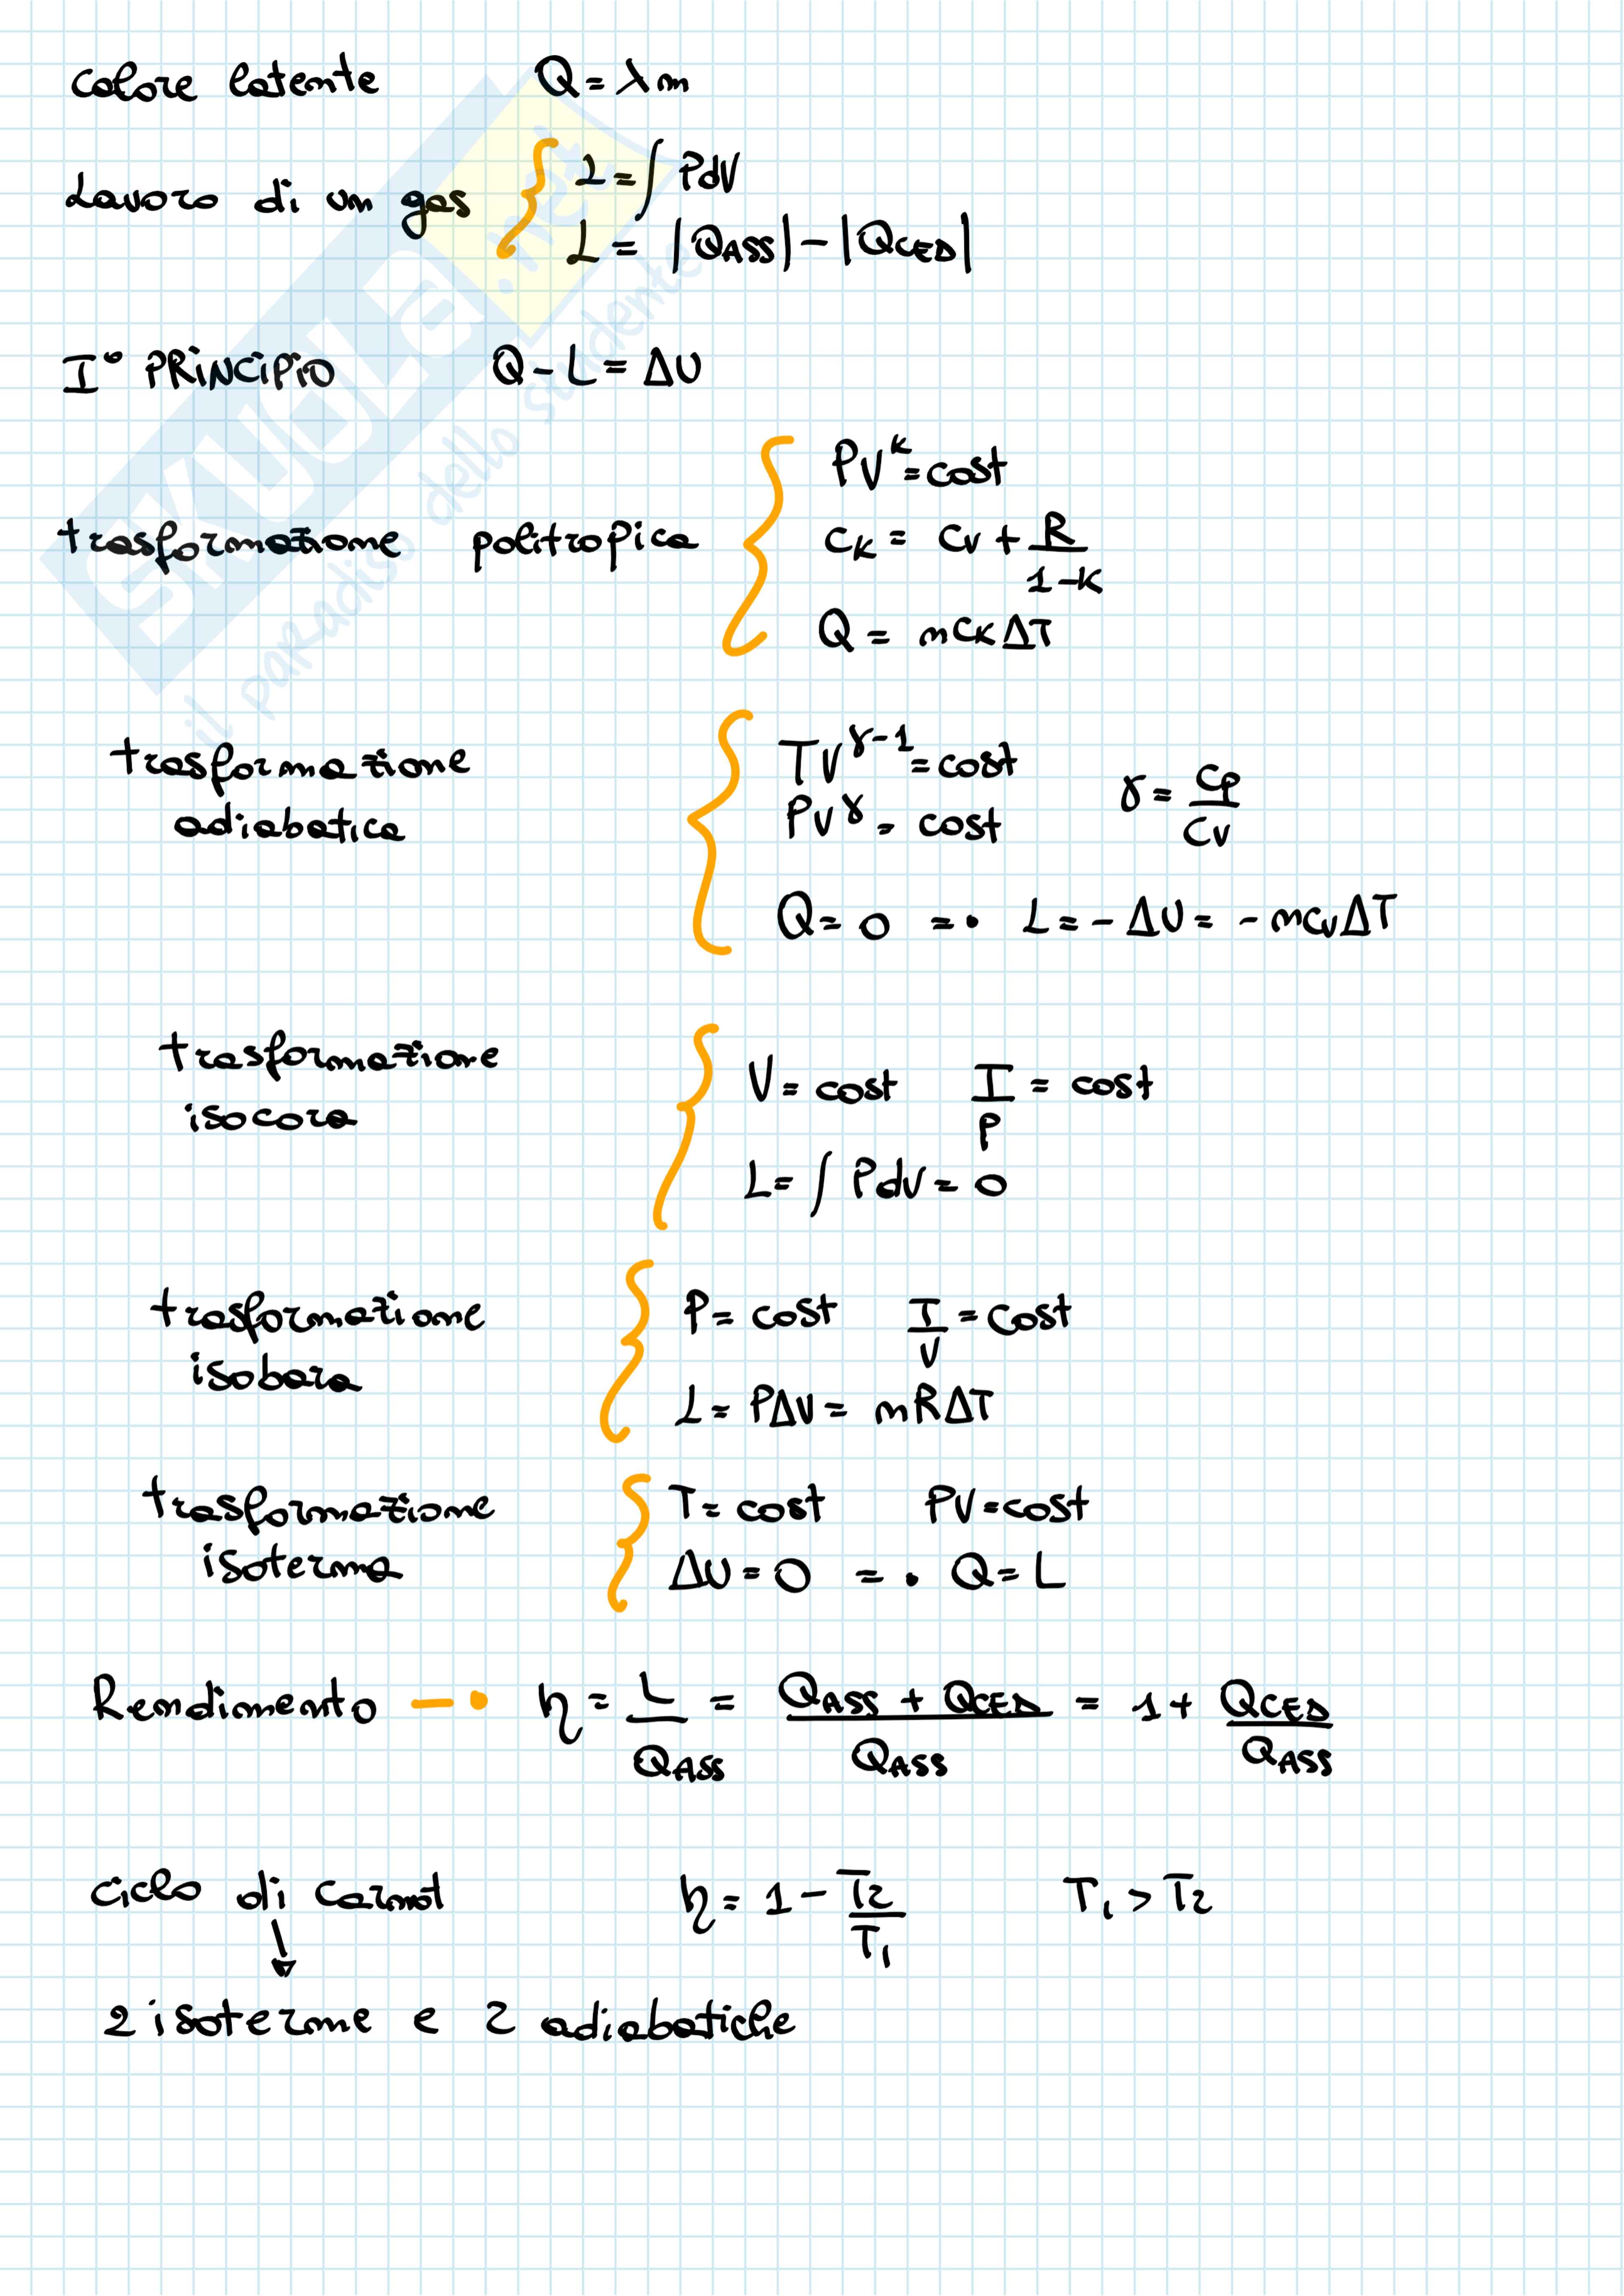 calore latente Q = λm
Lavoro di un gas { L = ∫ PdV
L = |QASS| - |QCED|
I° PRINCIPIO Q - L = ΔU
trasformazione politropica { PV^K = cost
CK = CV + R/(1-K)
Q = nCKΔT
trasformazione adiabatica { TV^(γ-1) = cost
PV^γ = cost γ = CP/CV
Q = 0 => L = -ΔU = -nCVΔT
trasformazione isocora { V = cost T/P = cost
L = ∫ PdV = 0
trasformazione isobara { P = cost T/V = cost
L = PΔV = nRΔT
trasformazione isoterma { T = cost PV = cost
ΔU = 0 => Q = L
Rendimento → η = L/QASS = (QASS + QCED)/QASS = 1 + QCED/QASS
ciclo di Carnot η = 1 - T2/T1 T1 > T2
↓
2 isoterme e 2 adiabatiche
SKUOLA.net
il paradiso dello studente